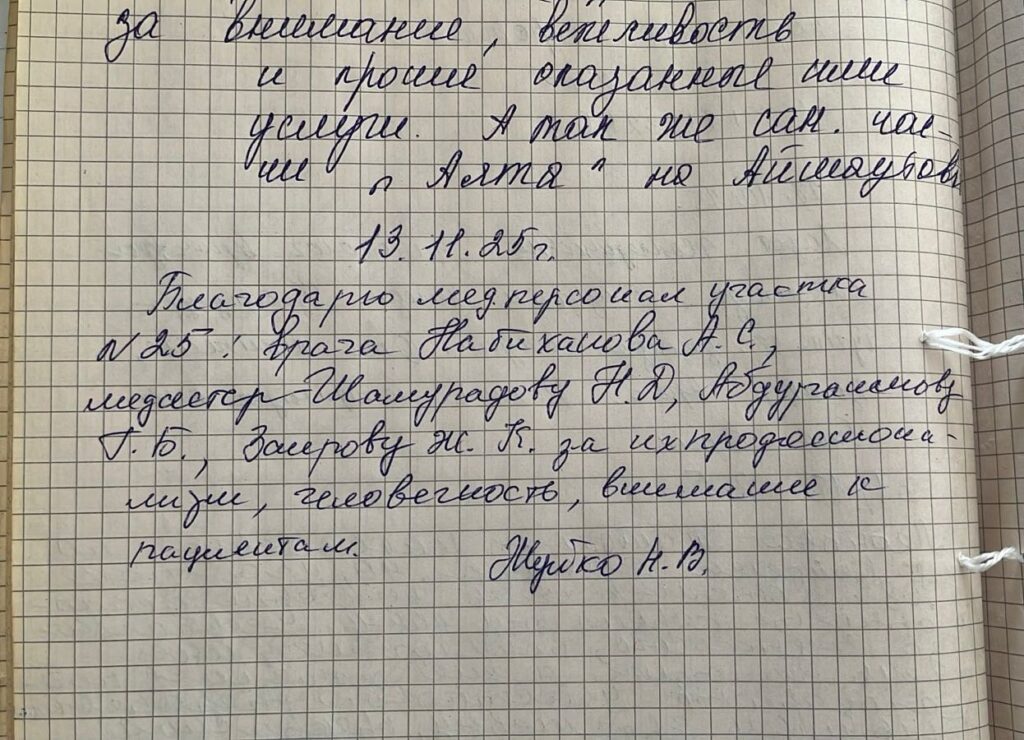 за внимание, вежливость
и прочие оказанные ими
услуги. А так же сан. час-
ти "Алта" на
13.11.25г.
Благодарю медперсонал участка
№25: врача Набиханова А.С.,
медсестер Шамурадову Н.Д, Абдургаимову
Г.Б., Заирову Ж.К. за их профессиона-
лизм, человечность, внимание к
пациентам.
Н.В.